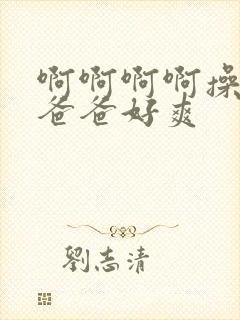 啊啊啊啊操
爸爸好爽
劉志清